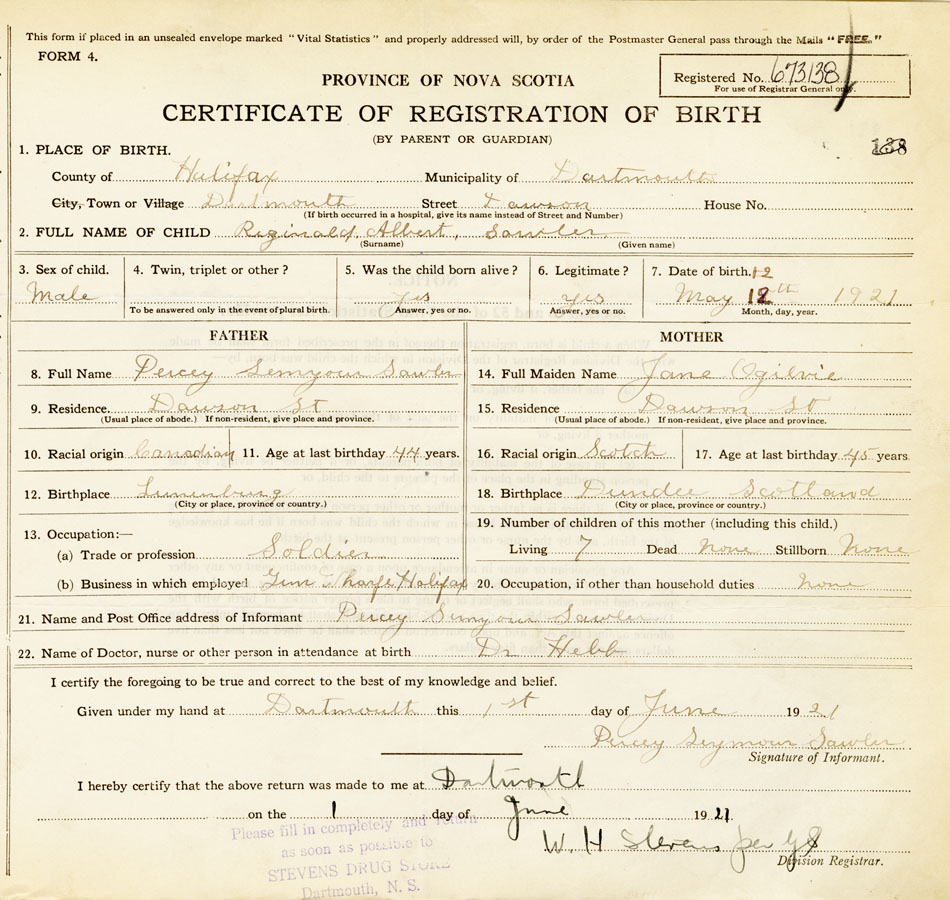 This form if placed in an unsealed envelope marked "Vital Statistics" and properly addressed will, by order of the Postmaster General pass through the Mails "FREE."
FORM 4.
Registered No. 673138
For use of Registrar General only.
PROVINCE OF NOVA SCOTIA
CERTIFICATE OF REGISTRATION OF BIRTH
(BY PARENT OR GUARDIAN)
138
1. PLACE OF BIRTH.
County of Halifax Municipality of Dartmouth
City, Town or Village Dartmouth Street Dawson House No.
(If birth occurred in a hospital, give its name instead of Street and Number)
2. FULL NAME OF CHILD Reginald, Albert, Sawler
(Surname) (Given name)
3. Sex of child. 4. Twin, triplet or other? 5. Was the child born alive? 6. Legitimate? 7. Date of birth. 12
Male yes yes May 12th 1921
To be answered only in the event of plural birth. Answer, yes or no. Answer, yes or no. Month, day, year.
FATHER MOTHER
8. Full Name Percey Semyour Sawler 14. Full Maiden Name Jane Ogilvie
9. Residence. Dawson St 15. Residence Dawson St
(Usual place of abode.) If non-resident, give place and province. (Usual place of abode.) If non-resident, give place and province.
10. Racial origin Canadian 11. Age at last birthday 44 years. 16. Racial origin Scotch 17. Age at last birthday 45 years.
12. Birthplace Lunenburg 18. Birthplace Dundee Scotland
(City or place, province or country.) (City or place, province or country.)
13. Occupation:— 19. Number of children of this mother (including this child.)
(a) Trade or profession Soldier Living 7 Dead None Stillborn None
(b) Business in which employed Halifax 20. Occupation, if other than household duties none
21. Name and Post Office address of Informant Percey Semyour Sawler
22. Name of Doctor, nurse or other person in attendance at birth Dr Hebb
I certify the foregoing to be true and correct to the best of my knowledge and belief.
Given under my hand at Dartmouth this 1st day of June 1921
Percey Seymour Sawler
Signature of Informant.
I hereby certify that the above return was made to me at Dartmouth
on the 1 day of June 1921.
W. H Stevens per
Division Registrar.
Please fill in completely and return
as soon as possible to
STEVENS DRUG STORE
Dartmouth, N. S.